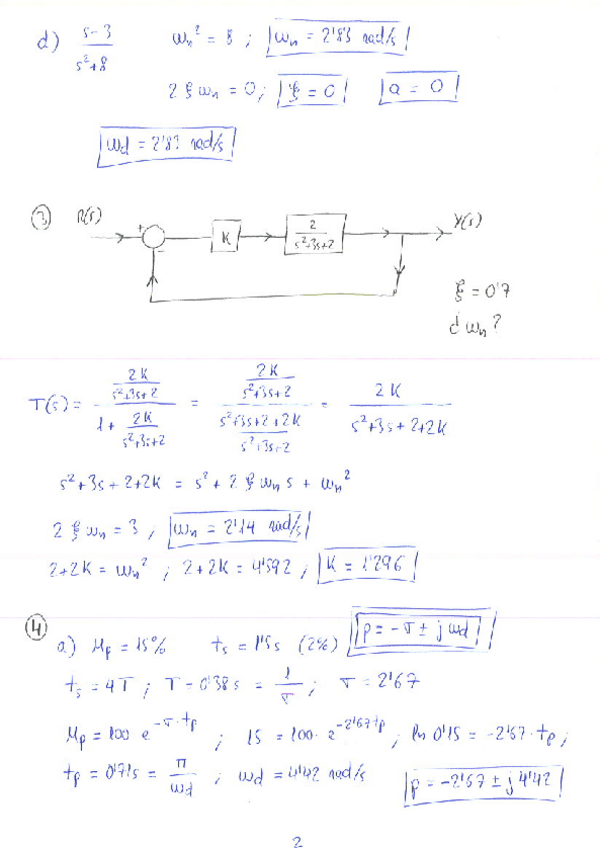 d) (s-3)/(s²+8)   ωn² = 8 ; ωn = 2'83 rad/s
2 ξ ωn = 0 ; ξ = 0   σ = 0
ωd = 2'83 rad/s
③ R(s) + - K 2/(s²+3s+2) Y(s)
ξ = 0'7
¿ ωn ?
T(s) = (2K/(s²+3s+2))/(1 + 2K/(s²+3s+2)) = (2K/(s²+3s+2))/((s²+3s+2+2K)/(s²+3s+2)) = 2K/(s²+3s+2+2K)
s²+3s+2+2K = s² + 2 ξ ωn s + ωn²
2 ξ ωn = 3 ; ωn = 2'14 rad/s
2+2K = ωn² ; 2+2K = 4'592 ; K = 1'296
④ a) Mp = 15%   ts = 1'5s (2%)   p = -σ ± j ωd
ts = 4T ; T = 0'38 s = 1/σ ; σ = 2'67
Mp = 100 e^(-σ·tp) ; 15 = 100 · e^(-2'67 tp) ; ln 0'15 = -2'67 · tp ;
tp = 0'71s = π/ωd ; ωd = 4'42 rad/s   p = -2'67 ± j 4'42
2